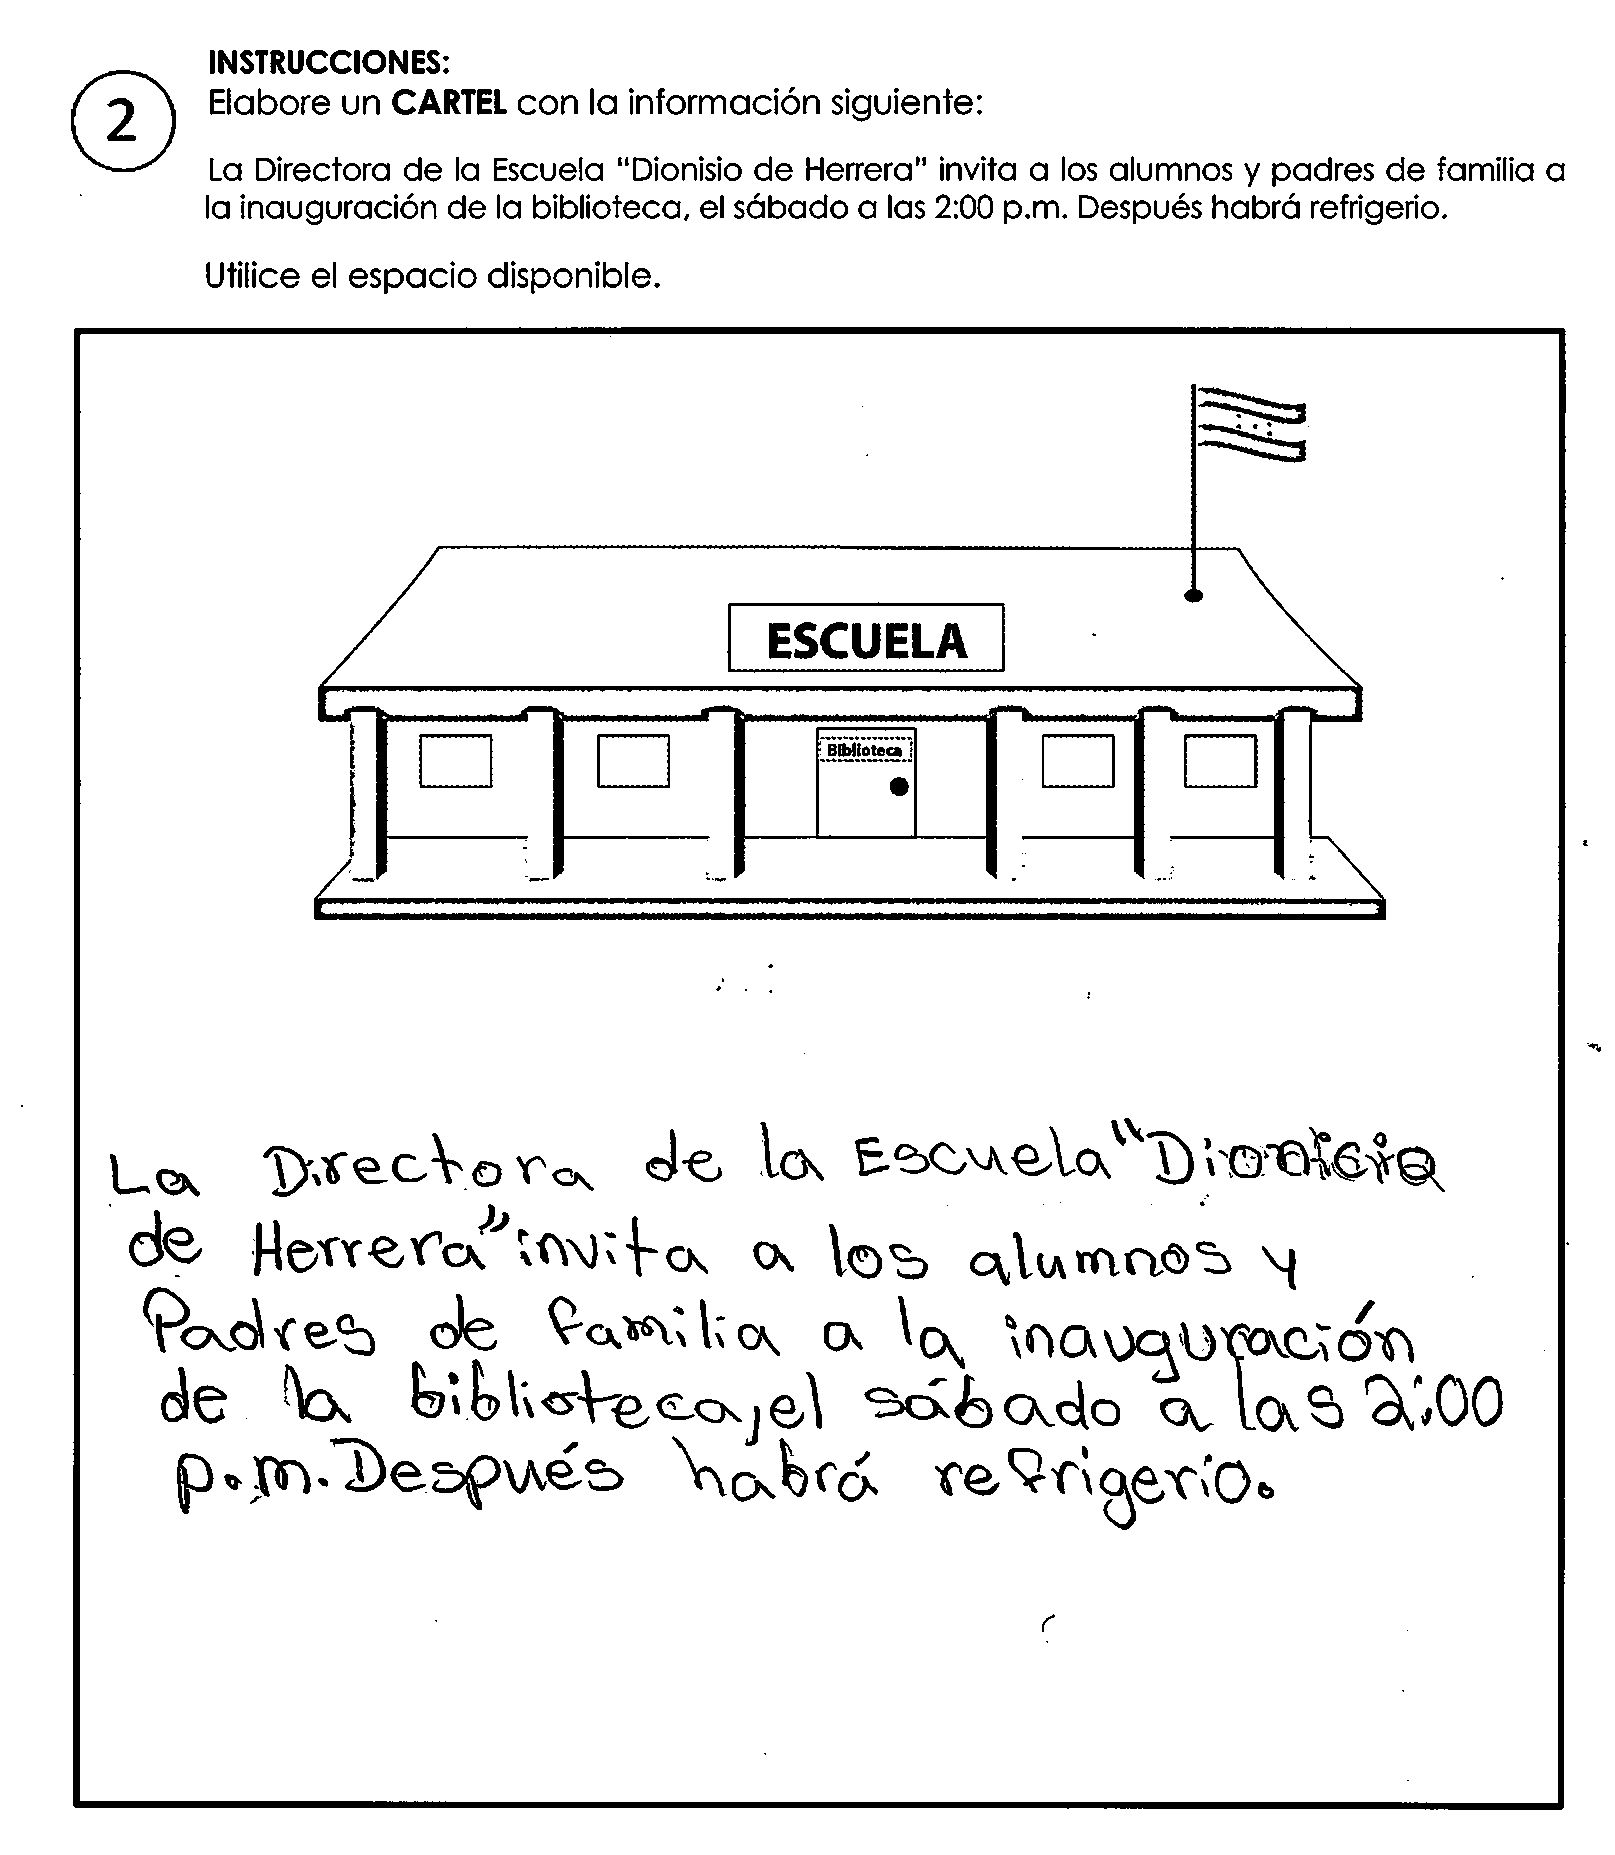 INSTRUCCIONES:
2
Elabore un CARTEL con la información siguiente:
La Directora de la Escuela "Dionisio de Herrera" invita a los alumnos y padres de familia a
la inauguración de la biblioteca, el sábado a las 2:00 p.m. Después habrá refrigerio.
Utilice el espacio disponible.
ESCUELA
Biblioteca
La Directora de la Escuela "
de Herrera" invita a los alumnos y
Padres de familia a la inauguración
de la biblioteca, el sábado a las 2:00
p.m. Después habrá refrigerio.